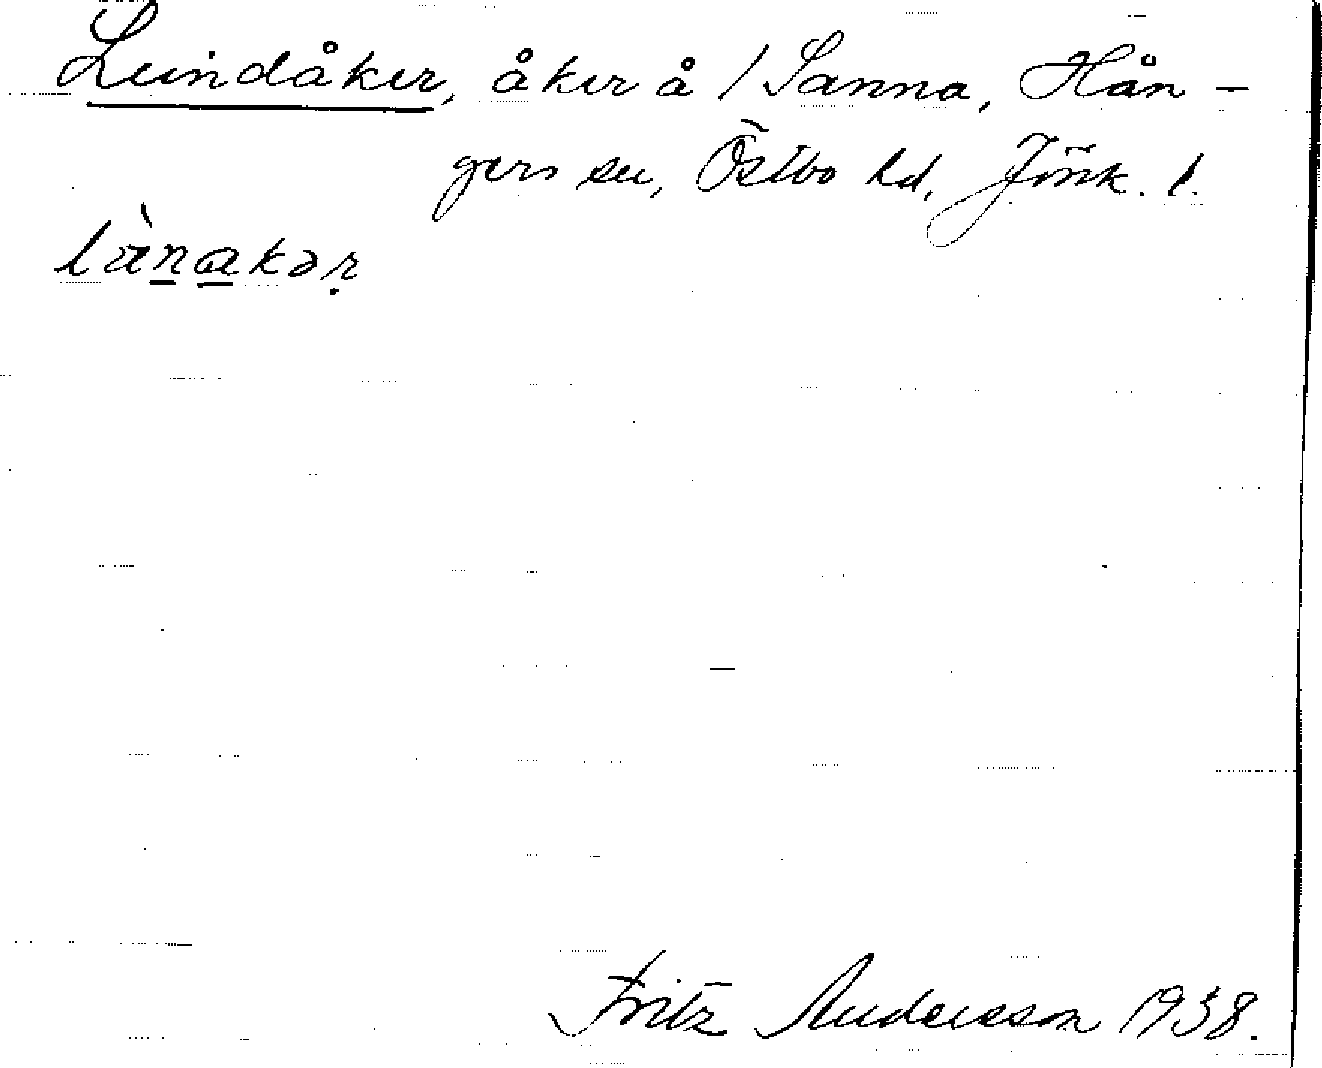 Lundåker, åker å /Sanna, Hån-
gers sn, Östbo hd, Jönk. l.
lànakər
Fritz Andersson 1938.